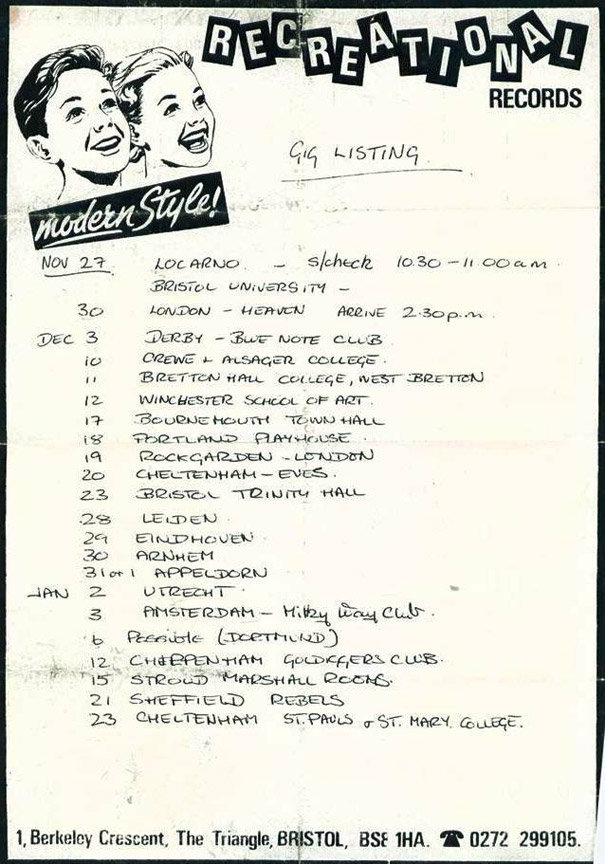 RECREATIONAL
RECORDS
GIG LISTING
modern Style!
NOV 27 LOCARNO - S/check 10.30 - 11.00am.
BRISTOL UNIVERSITY -
30 LONDON - HEAVEN ARRIVE 2.30p.m.
DEC 3 DERBY - BLUE NOTE CLUB
10 CREWE + ALSAGER COLLEGE.
11 BRETTON HALL COLLEGE, WEST BRETTON
12 WINCHESTER SCHOOL OF ART.
17 BOURNEMOUTH TOWN HALL
18 PORTLAND PLAYHOUSE.
19 ROCKGARDEN - LONDON
20 CHELTENHAM - EVES.
23 BRISTOL TRINITY HALL
28 LEIDEN.
29 EINDHOVEN.
30 ARNHEM
31 or 1 APPELDORN
JAN 2 UTRECHT.
3 AMSTERDAM - Milky Way Club.
6 POSSIBLE (DORTMUND)
12 CHIPPENHAM GOLDIGGERS CLUB.
15 STROUD MARSHALL ROOMS.
21 SHEFFIELD REBELS
23 CHELTENHAM ST. PAULS & ST. MARY. COLLEGE.
1, Berkeley Crescent, The Triangle, BRISTOL, BS8 1HA. ☎ 0272 299105.